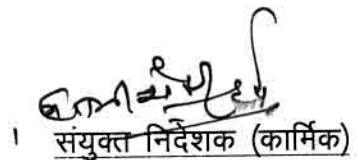 । संयुक्त निर्देशक (कार्मिक)